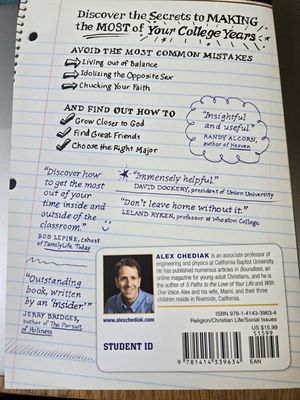 Discover the Secrets to MAKING
the MOST of Your College Years
AVOID THE MOST COMMON MISTAKES
Living out of Balance
Idolizing the Opposite Sex
Chucking Your Faith
AND FIND OUT HOW TO
Grow Closer to God
Find Great Friends
Choose the Right Major
"Insightful
and useful"
RANDY ALCORN,
author of Heaven
"Discover how
to get the most
out of your
time inside and
outside of the
classroom."
BOB LEPINE, cohost
of FamilyLife Today
"Immensely helpful"
DAVID DOCKERY, president of Union University
"Don't leave home without it."
LELAND RYKEN, professor at Wheaton College
"Outstanding
book written
by an 'insider.'"
JERRY BRIDGES,
author of The Pursuit
of Holiness
ALEX CHEDIAK is an associate professor of
engineering and physics at California Baptist University.
He has published numerous articles in Boundless, an
online magazine for young-adult Christians, and he is
the author of 5 Paths to the Love of Your Life and With
One Voice. Alex and his wife, Marni, and their three
children reside in Riverside, California.
www.alexchediak.com
STUDENT ID
ISBN 978-1-4143-3963-4
Religion/Christian Life/Social Issues
US $15.99
51599
9 781414 339634
EAN